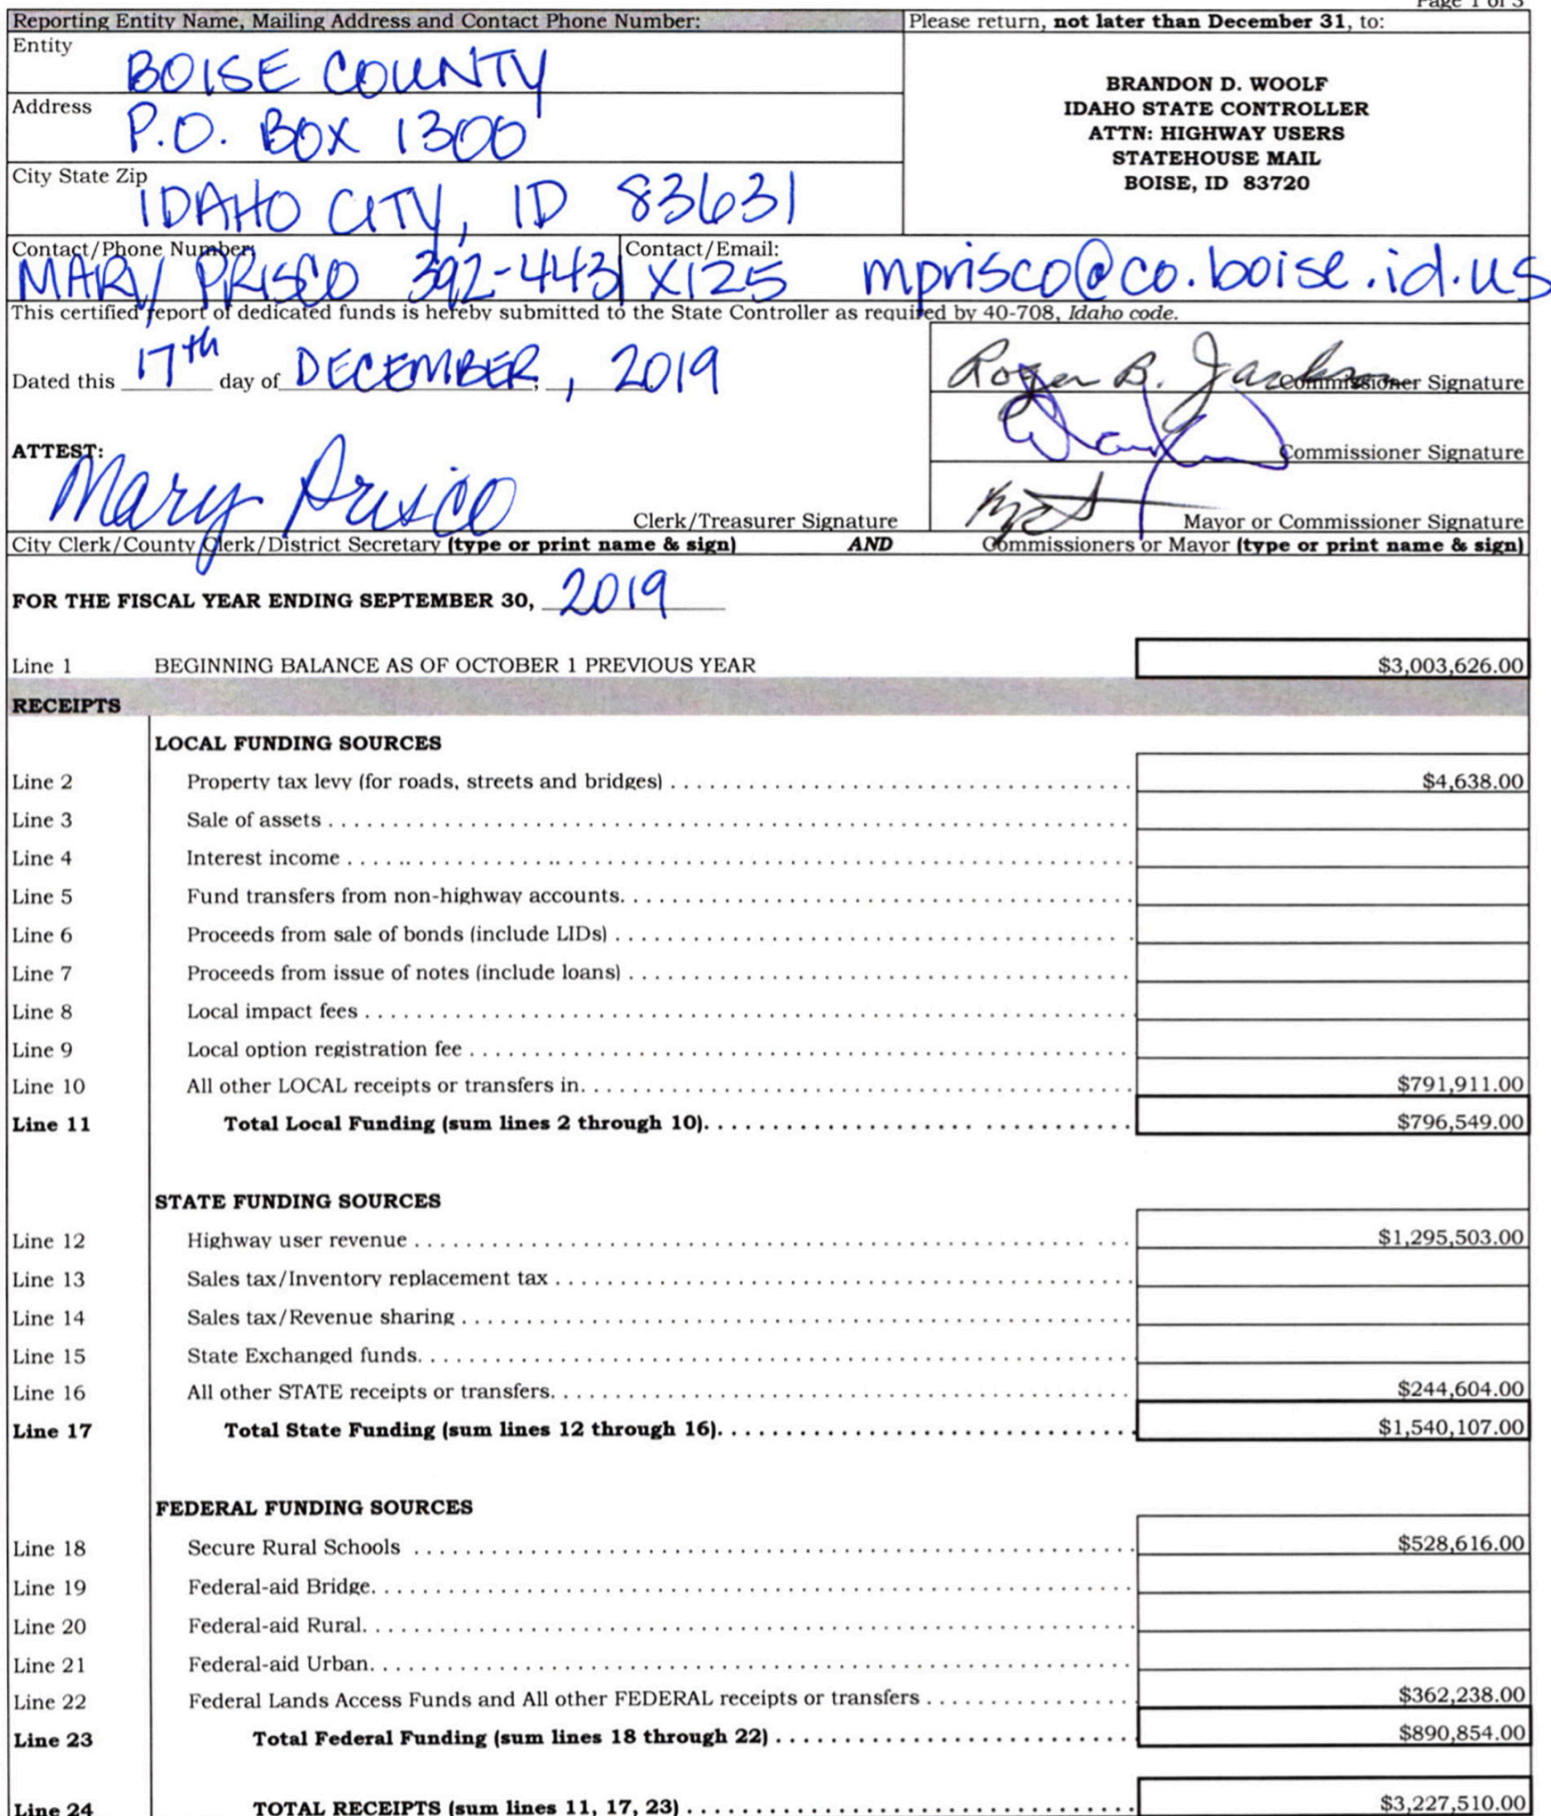 Page 1 of 3
Reporting Entity Name, Mailing Address and Contact Phone Number:
Please return, not later than December 31, to:
Entity
BOISE COUNTY
Address
P.O. BOX 1300
City State Zip
IDAHO CITY, ID 83631
BRANDON D. WOOLF
IDAHO STATE CONTROLLER
ATTN: HIGHWAY USERS
STATEHOUSE MAIL
BOISE, ID 83720
Contact/Phone Number:
MARY PRISCO 392-4431 X125
Contact/Email:
mprisco@co.boise.id.us
This certified report of dedicated funds is hereby submitted to the State Controller as required by 40-708, Idaho code.
Dated this 17th day of DECEMBER, 2019
Roger B. Jackson
Commissioner Signature
Commissioner Signature
ATTEST:
Mary Prisco
Clerk/Treasurer Signature
Mayor or Commissioner Signature
City Clerk/County Clerk/District Secretary (type or print name & sign) AND Commissioners or Mayor (type or print name & sign)
FOR THE FISCAL YEAR ENDING SEPTEMBER 30, 2019
Line 1 BEGINNING BALANCE AS OF OCTOBER 1 PREVIOUS YEAR $3,003,626.00
RECEIPTS
LOCAL FUNDING SOURCES
Line 2 Property tax levy (for roads, streets and bridges) $4,638.00
Line 3 Sale of assets
Line 4 Interest income
Line 5 Fund transfers from non-highway accounts
Line 6 Proceeds from sale of bonds (include LIDs)
Line 7 Proceeds from issue of notes (include loans)
Line 8 Local impact fees
Line 9 Local option registration fee
Line 10 All other LOCAL receipts or transfers in $791,911.00
Line 11 Total Local Funding (sum lines 2 through 10) $796,549.00
STATE FUNDING SOURCES
Line 12 Highway user revenue $1,295,503.00
Line 13 Sales tax/Inventory replacement tax
Line 14 Sales tax/Revenue sharing
Line 15 State Exchanged funds
Line 16 All other STATE receipts or transfers $244,604.00
Line 17 Total State Funding (sum lines 12 through 16) $1,540,107.00
FEDERAL FUNDING SOURCES
Line 18 Secure Rural Schools $528,616.00
Line 19 Federal-aid Bridge
Line 20 Federal-aid Rural
Line 21 Federal-aid Urban
Line 22 Federal Lands Access Funds and All other FEDERAL receipts or transfers $362,238.00
Line 23 Total Federal Funding (sum lines 18 through 22) $890,854.00
Line 24 TOTAL RECEIPTS (sum lines 11, 17, 23) $3,227,510.00